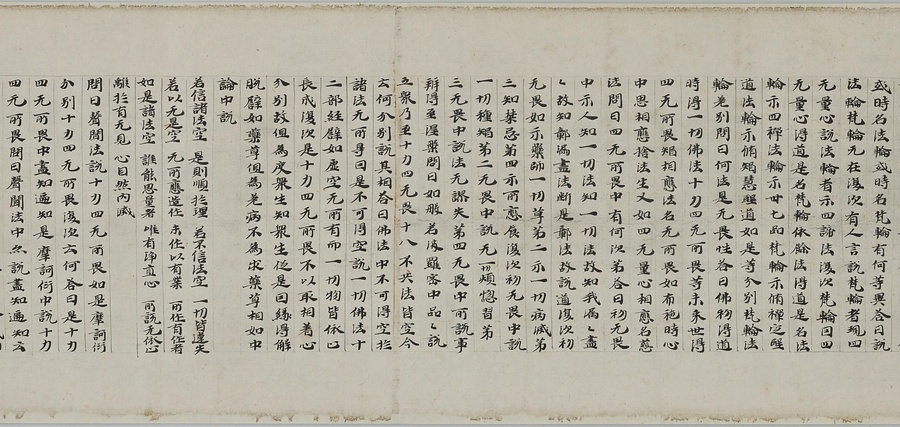 或時名法輪或時名梵輪有何等異答曰說
法輪梵輪无在復次有人言說梵輪者現四
无量心說法輪者示四諦法復次梵輪因四
无量心得道是名梵輪依餘法得道是名法
輪示四禪法輪示卅七品梵輪示脩禪定聖
道法輪示脩智慧聖道如是等分別梵輪法
輪差別問曰何法是无畏性答曰佛初得道
時得一切佛法十力四无所畏等未來世得
四无所畏智相應法名无所畏如布施時心
中思相應捨法生又如四无量心相應名慈
法問曰四无所畏中有何次第答曰初无畏
中示人知一切法知一切法故知我漏〻盡
〻故知鄣漏盡法斷是鄣法故說道復次初
无畏如示藥師一切草第二示一切病滅第
三知禁忌第四示所應食復次初无畏中說
一切種智第二无畏中說无一切煩惱習第
三无畏中說法无謬失第四无畏中所說事
辨得至涅槃問曰如般若波羅蜜中品〻說
五衆乃至十力四无所畏十八不共法皆空今
云何分別說其相答曰佛法中不可得空於
諸法无所㝵因是不可得空說一切佛法十
二部經譬如虛空无所有而一切物皆依已
長成復次是十力四无所畏不以取相著心
分別故但為度衆生知衆生從是因緣得解
脫譬如藥草但為差病不為求藥草相如中
論中說
若信諸法空 是則順於理 若不信法空 一切皆違失
若以无是空 无所應造作 未作以有業 不作有作者
如是諸法空 誰能思量者 唯有淨直心 所說无依止
離於有无見 心自然內滅
問曰聲聞法說十力四无所畏如是摩訶衍
分別十力四无所畏復次云何答曰是十力
四无所畏中盡知遍知是摩訶衍中說十力
四无所畏問曰聲聞法中亦說盡知遍知云